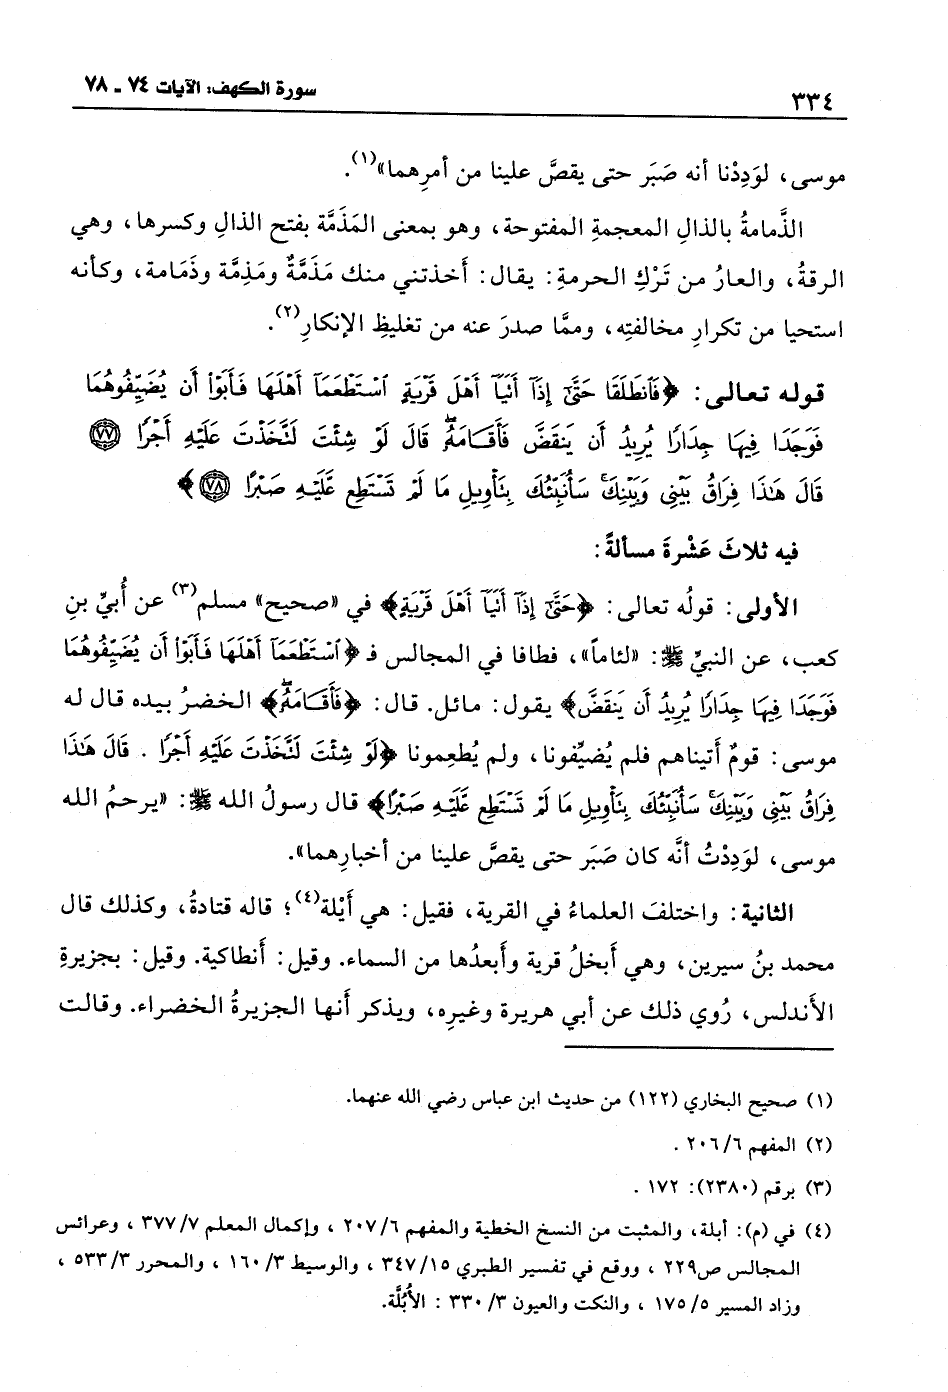 سورة الكهف: الآيات ٧٤ ـ ٧٨
٣٣٤
موسى، لوَدِدْنا أنه صَبَر حتى يقصَّ علينا من أمرِهما»(١).
الذَّمامةُ بالذالِ المعجمةِ المفتوحة، وهو بمعنى المَذَمَّة بفتح الذال وكسرها، وهي
الرقةُ، والعارُ من تَرْكِ الحرمةِ: يقال: أخذتني منك مَذَمَّةٌ ومَذِمَّة وذَمَامة، وكأنه
استحيا من تكرارِ مخالفتِه، وممَّا صدرَ عنه من تغليظِ الإنكارِ(٢).
قوله تعالى: ﴿فَٱنطَلَقَا حَتَّىٰٓ إِذَآ أَنَيَآ أَهْلَ قَرْيَةٍ ٱسْتَطْعَمَآ أَهْلَهَا فَأَبَوْا۟ أَن يُضَيِّفُوهُمَا
فَوَجَدَا فِيهَا جِدَارًا يُرِيدُ أَن يَنقَضَّ فَأَقَامَهُۥۖ قَالَ لَوْ شِئْتَ لَتَّخَذْتَ عَلَيْهِ أَجْرًا ٧٧
قَالَ هَٰذَا فِرَاقُ بَيْنِى وَبَيْنِكَۚ سَأُنَبِّئُكَ بِتَأْوِيلِ مَا لَمْ تَسْتَطِع عَّلَيْهِ صَبْرًا ٧٨﴾
فيه ثلاثَ عَشْرةَ مسألةً:
الأولى: قولُه تعالى: ﴿حَتَّىٰٓ إِذَآ أَنَيَآ أَهْلَ قَرْيَةٍ﴾ في «صحيح» مسلم(٣) عن أُبيِّ بنِ
كعب، عن النبيِّ ﷺ: «لئاماً»، فطافا في المجالس فـ ﴿ٱسْتَطْعَمَآ أَهْلَهَا فَأَبَوْا۟ أَن يُضَيِّفُوهُمَا
فَوَجَدَا فِيهَا جِدَارًا يُرِيدُ أَن يَنقَضَّ﴾ يقول: مائل. قال: ﴿فَأَقَامَهُۥۖ﴾ الخضرُ بيده قال له
موسى: قومٌ أتيناهم فلم يُضيِّفونا، ولم يُطعِمونا ﴿لَوْ شِئْتَ لَتَّخَذْتَ عَلَيْهِ أَجْرًا . قَالَ هَٰذَا
فِرَاقُ بَيْنِى وَبَيْنِكَۚ سَأُنَبِّئُكَ بِتَأْوِيلِ مَا لَمْ تَسْتَطِع عَّلَيْهِ صَبْرًا﴾ قال رسولُ الله ﷺ: «يرحمُ الله
موسى، لوَدِدْتُ أنَّه كان صَبَر حتى يقصَّ علينا من أخبارِهما».
الثانية: واختلفَ العلماءُ في القرية، فقيل: هي أَيْلة(٤)؛ قاله قتادةُ، وكذلك قال
محمد بنُ سيرين، وهي أبخلُ قرية وأبعدُها من السماء. وقيل: أنطاكية. وقيل: بجزيرةِ
الأندلس، رُوي ذلك عن أبي هريرة وغيرِه، ويذكر أنها الجزيرةُ الخضراء. وقالت
(١) صحيح البخاري (١٢٢) من حديث ابن عباس رضي الله عنهما.
(٢) المفهم ٢٠٦/٦ .
(٣) برقم (٢٣٨٠): ١٧٢ .
(٤) في (م): أبلة، والمثبت من النسخ الخطية والمفهم ٢٠٧/٦ ، وإكمال المعلم ٣٧٧/٧ ، وعرائس
المجالس ص٢٢٩ ، ووقع في تفسير الطبري ٣٤٧/١٥ ، والوسيط ١٦٠/٣ ، والمحرر ٥٣٣/٣ ،
وزاد المسير ١٧٥/٥ ، والنكت والعيون ٣٣٠/٣ : الأُبُلَّة.